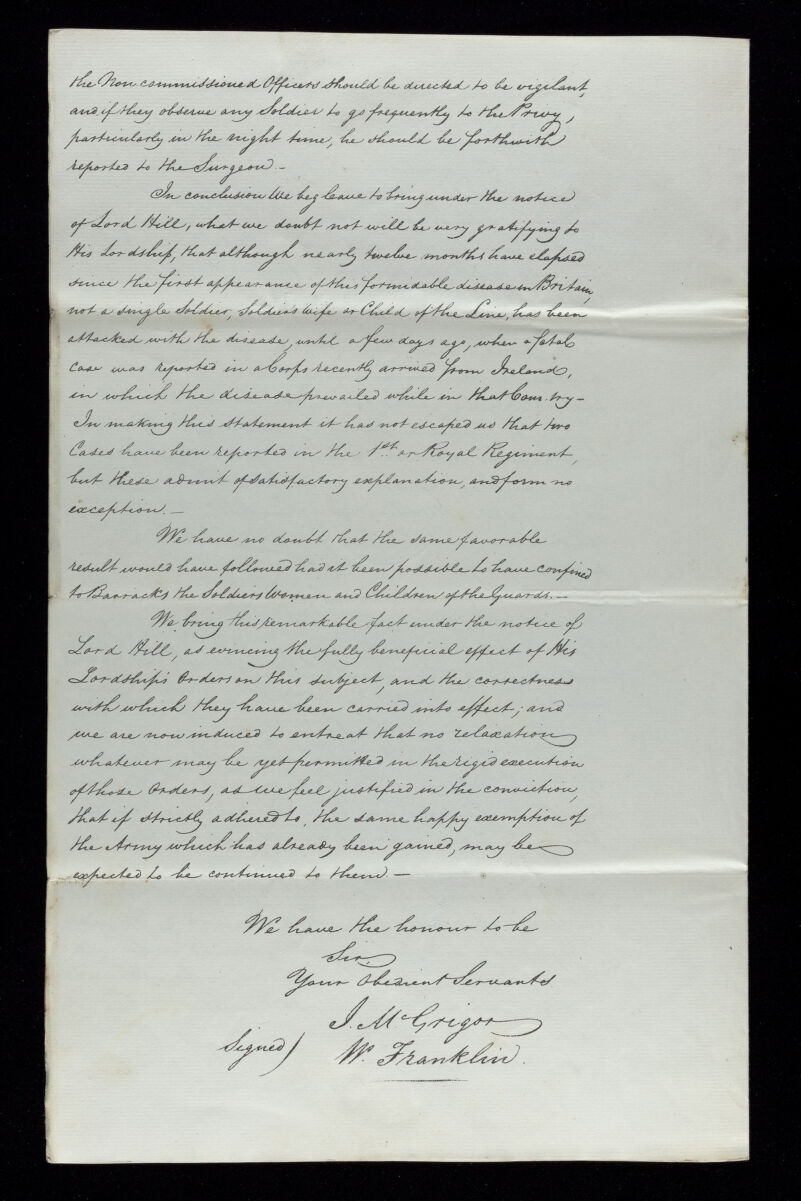 the Non commissioned Officers should be directed to be vigilant,
and if they observe any Soldier to go frequently to the Privy,
particularly in the night time, he should be forthwith
reported to the Surgeon. –
In conclusion We beg leave to bring under the notice
of Lord Hill, what we doubt not will be very gratifying to
His Lordship, that although nearly twelve months have elapsed
since the first appearance of this formidable disease in Britain,
not a single Soldier, Soldiers Wife or Child of the Line, has been
attacked with the disease, until a few days ago, when a fatal
Case was reported in a Corps recently arrived from Ireland,
in which the disease prevailed while in that Country –
In making this statement it has not escaped us that two
Cases have been reported in the 1st. or Royal Regiment,
but these admit of satisfactory explanation, and form no
exception. –
We have no doubt that the same favorable
result would have followed had it been possible to have confined
to Barracks the Soldiers Women and Children of the Guards. –
We bring this remarkable fact under the notice of
Lord Hill, as evincing the fully beneficial effect of His
Lordship's Orders on this subject, and the correctness
with which they have been carried into effect; and
we are now induced to entreat that no relaxation
whatever may be yet permitted in the rigid execution
of those Orders, as we feel justified in the conviction,
that if strictly adhered to, the same happy exemption of
the Army which has already been gained, may be
expected to be continued to them –
We have the honour to be
Sir,
Your Obedient Servants
J. McGrigor
Signed) W. Franklin.